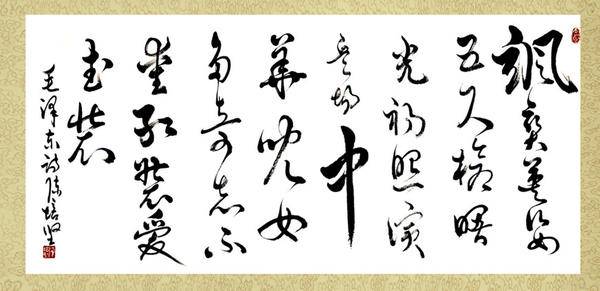 颯爽英姿
五尺槍曙
光初照演
兵场中
華儿女
多奇志不
爱红装愛
武装
毛泽东诗陈培坚